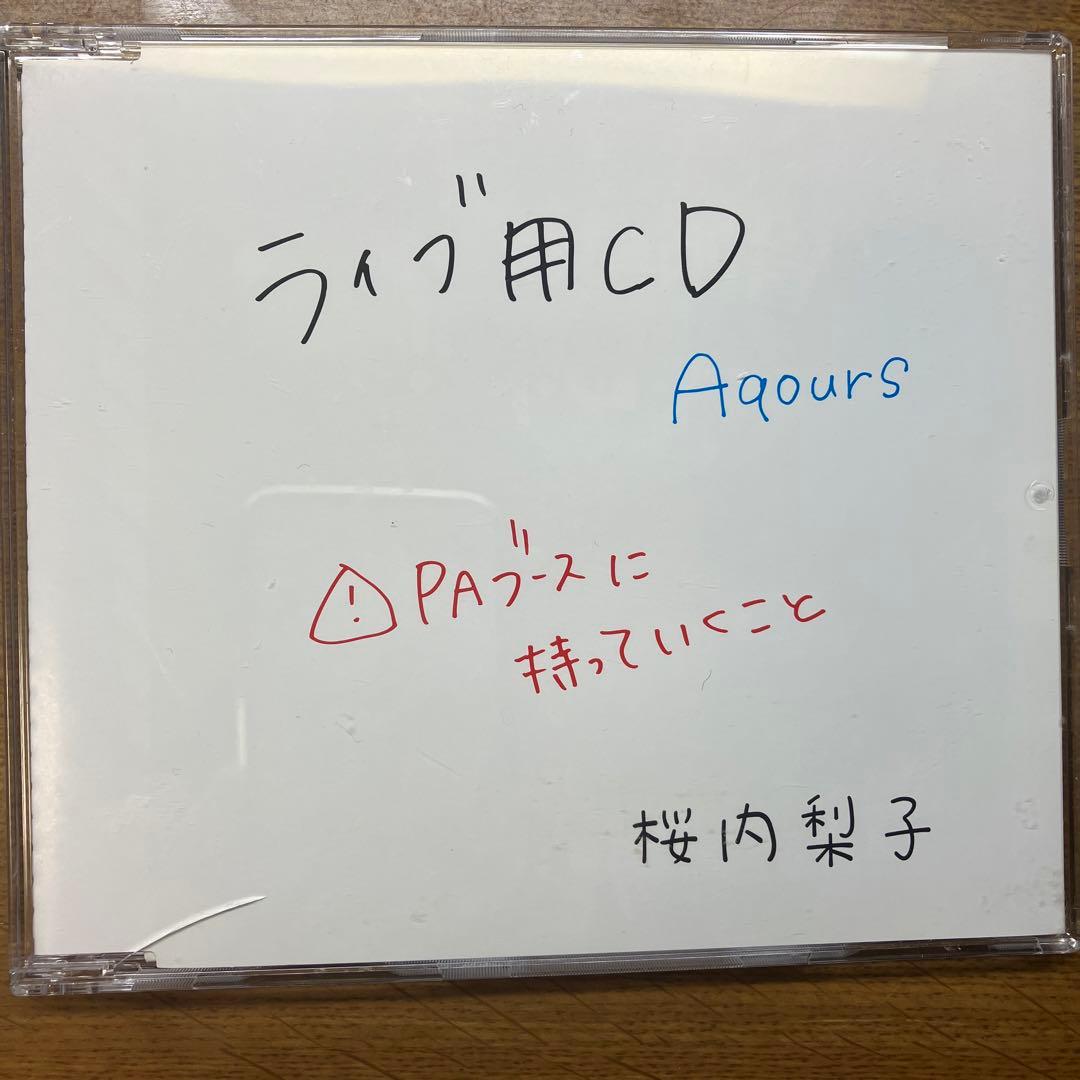 ライブ用CD
Aqours
⚠PAブースに
持っていくこと
桜内梨子